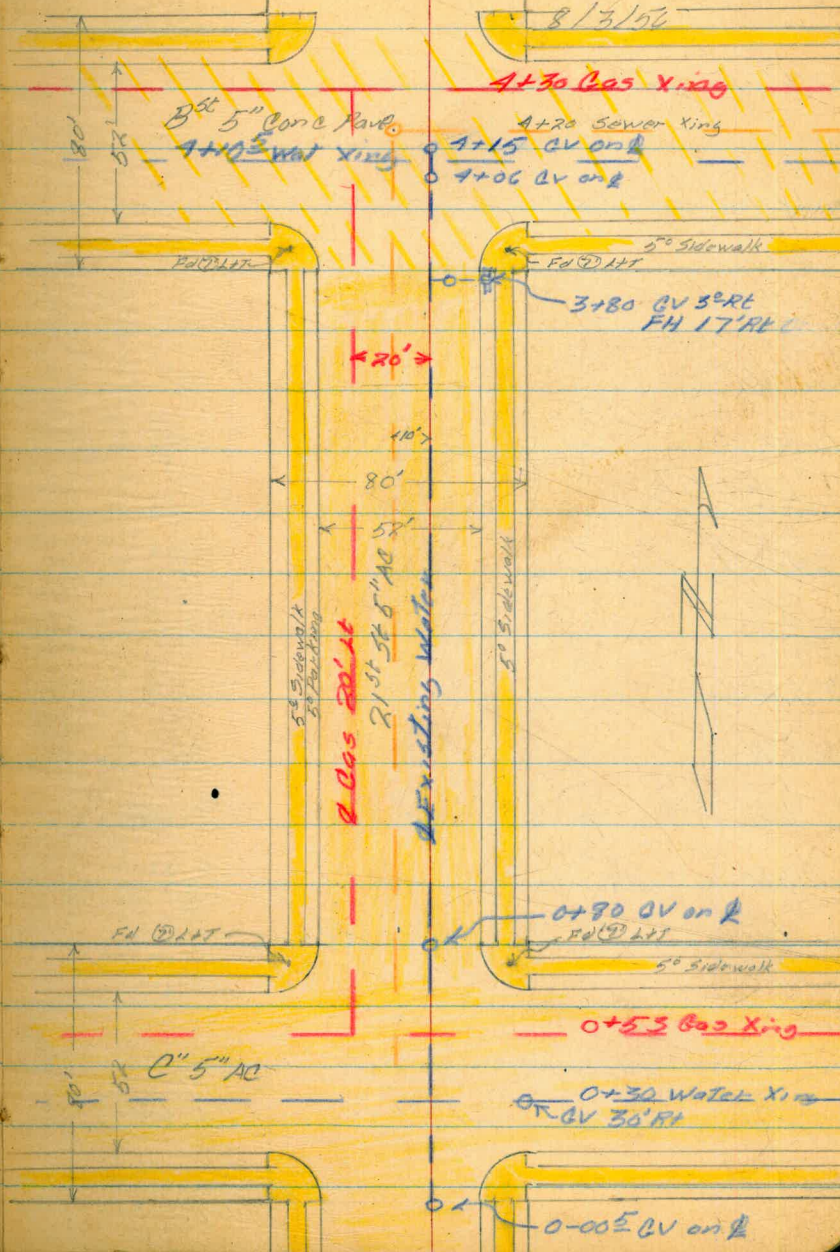 8/3/56
4+30 Gas Xing
80'
52'
B St 5" Conc Pave.
4+20 Sewer Xing
4+10⁵ Wat Xing
4+15 GV on ℄
4+06 GV on ℄
5⁰ Sidewalk
Fd 2" L+T
Fd 2" L+T
3+80 GV 3⁰ Rt
FH 17' Rt
20'
10'
80'
52'
5⁰ Sidewalk
5⁰ Parking
℄ Gas 20' Lt
21st St 5" AC
℄ Existing Water
5⁰ Sidewalk
N
0+80 GV on ℄
Fd 2" L+T
Fd 2" L+T
5⁰ Sidewalk
0+53 Gas Xing
"C" 5" AC
80'
52
0+30 Water Xing
GV 30' Rt
0-00⁵ GV on ℄